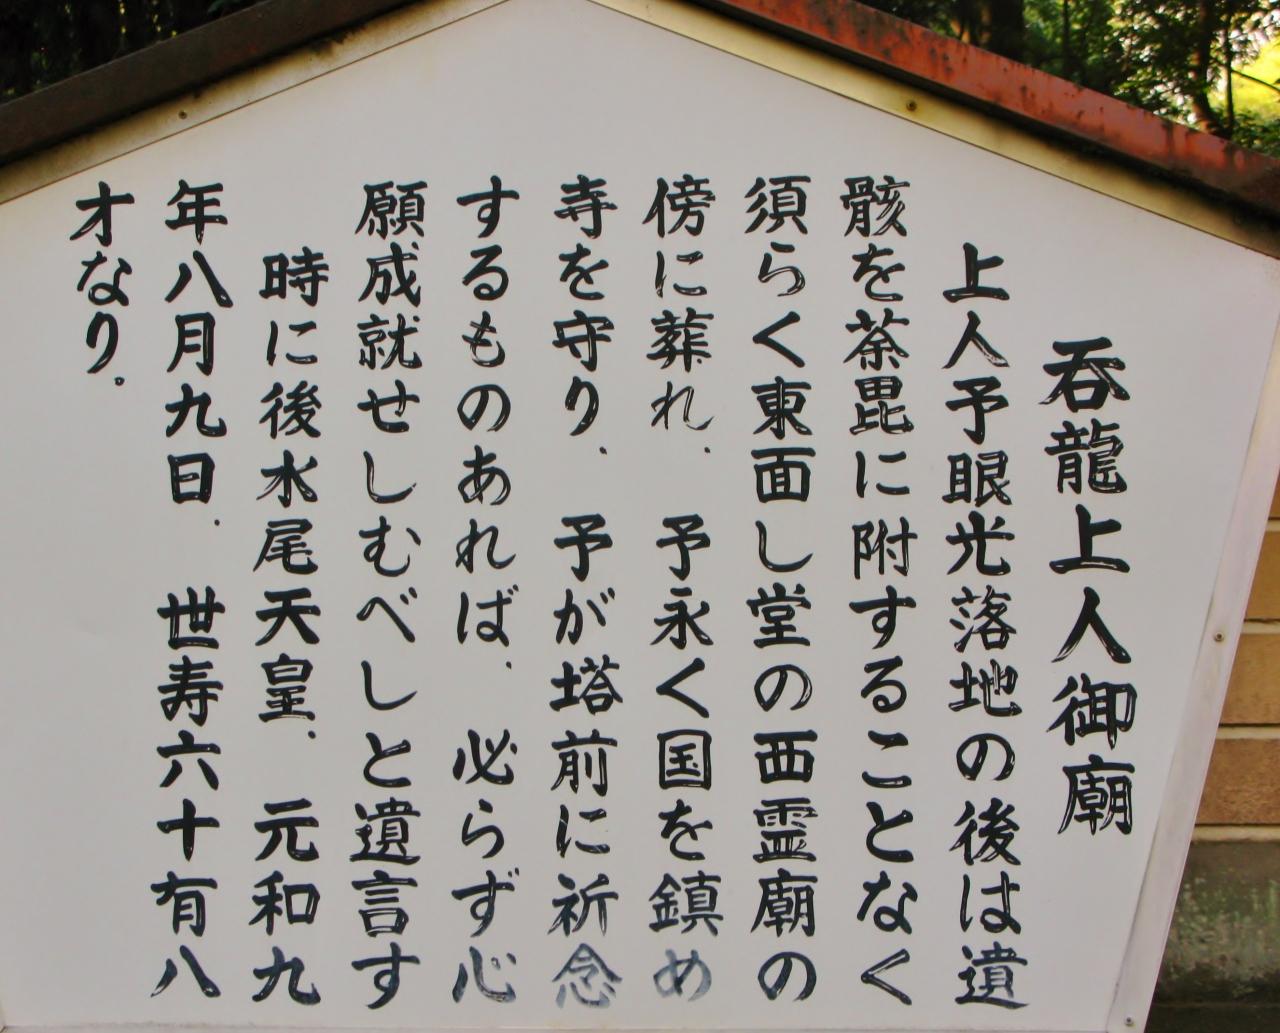 呑龍上人御廟
上人予眼光落地の後は遺
骸を荼毘に附することなく
須らく東面し堂の西霊廟の
傍に葬れ、予永く国を鎮め
寺を守り、予が塔前に祈念
するものあれば、必らず心
願成就せしむべしと遺言す
時に後水尾天皇、元和九
年八月九日、世寿六十有八
才なり。